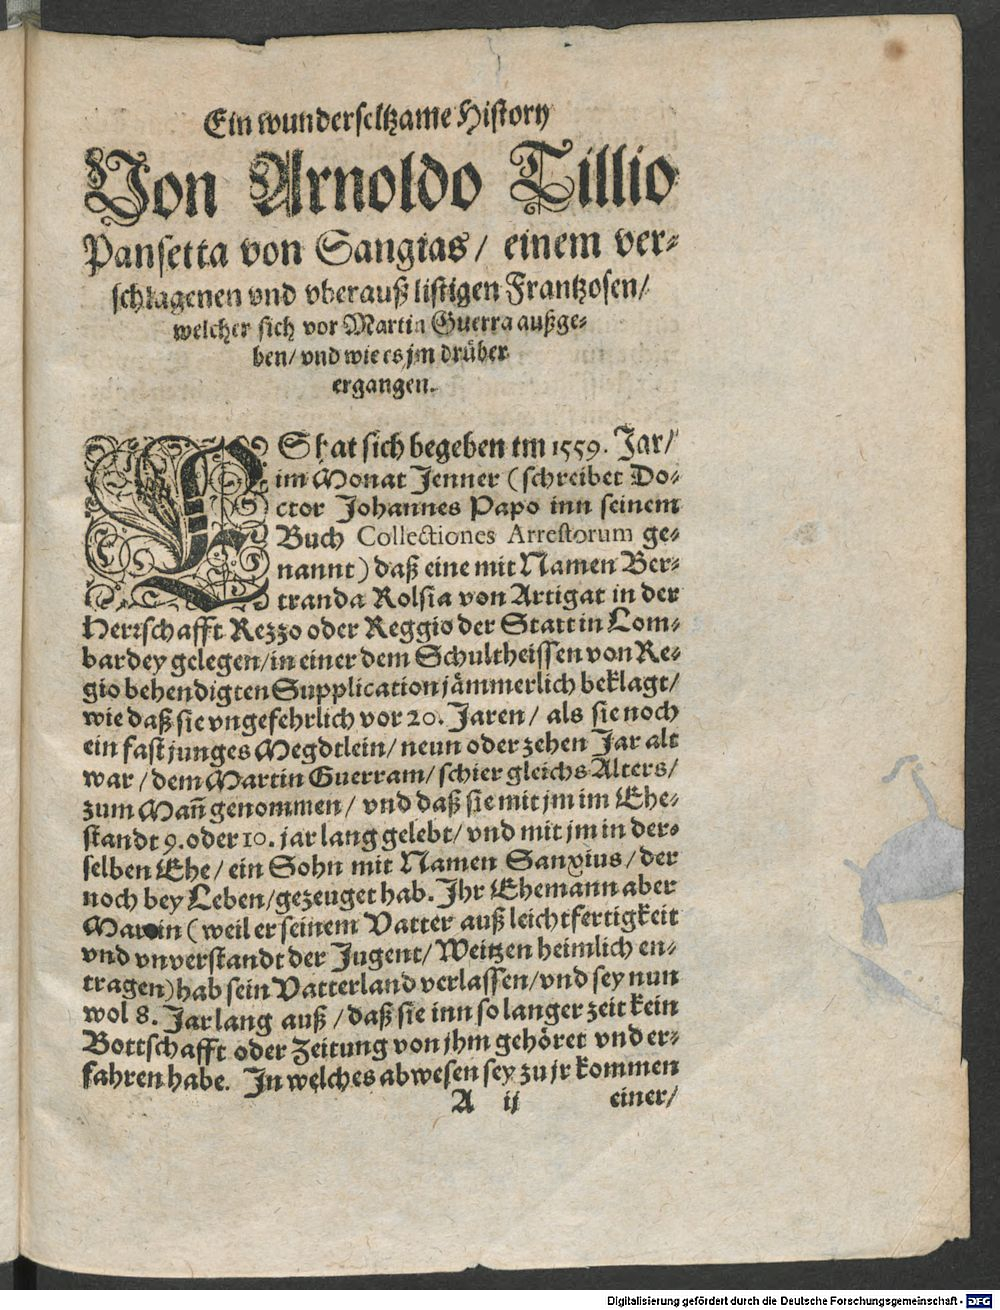 Ein wunderseltzame History
Von Arnoldo Tillio
Pansetta von Sangias / einem ver-
schlagenen vnd vberauß listigen Frantzosen /
welcher sich vor Martin Guerra außge-
ben / vnd wie es jm drüber
ergangen.
ES hat sich begeben im 1559. Jar /
im Monat Jenner (schreibet Do-
ctor Johannes Papo inn seinem
Buch Collectiones Arrestorum ge-
nannt) daß eine mit Namen Ber-
tranda Rolsia von Artigat in der
Herrschafft Rezzo oder Reggio der Statt in Lom-
bardey gelegen / in einer dem Schultheissen von Re-
gio behendigten Supplication jämmerlich beklagt /
wie daß sie vngefehrlich vor 20. Jaren / als sie noch
ein fast junges Megdtlein / neun oder zehen Jar alt
war / dem Martin Guerram / schier gleichs Alters /
zum Mañ genommen / vnd daß sie mit jm im Ehe-
standt 9. oder 10. jar lang gelebt / vnd mit jm in der-
selben Ehe / ein Sohn mit Namen Sanxius / der
noch bey Leben / gezeuget hab. Ihr Ehemann aber
Martin (weil er seinem Vatter auß leichtfertigkeit
vnd vnverstandt der Jugent / Weitzen heimlich en-
tragen) hab sein Vatterland verlassen / vnd sey nun
wol 8. Jar lang auß / daß sie inn so langer zeit kein
Bottschafft oder Zeitung von jhm gehöret vnd er-
fahren habe. In welches abwesen sey zu jr kommen
A ij einer /
Digitalisierung gefördert durch die Deutsche Forschungsgemeinschaft - DFG